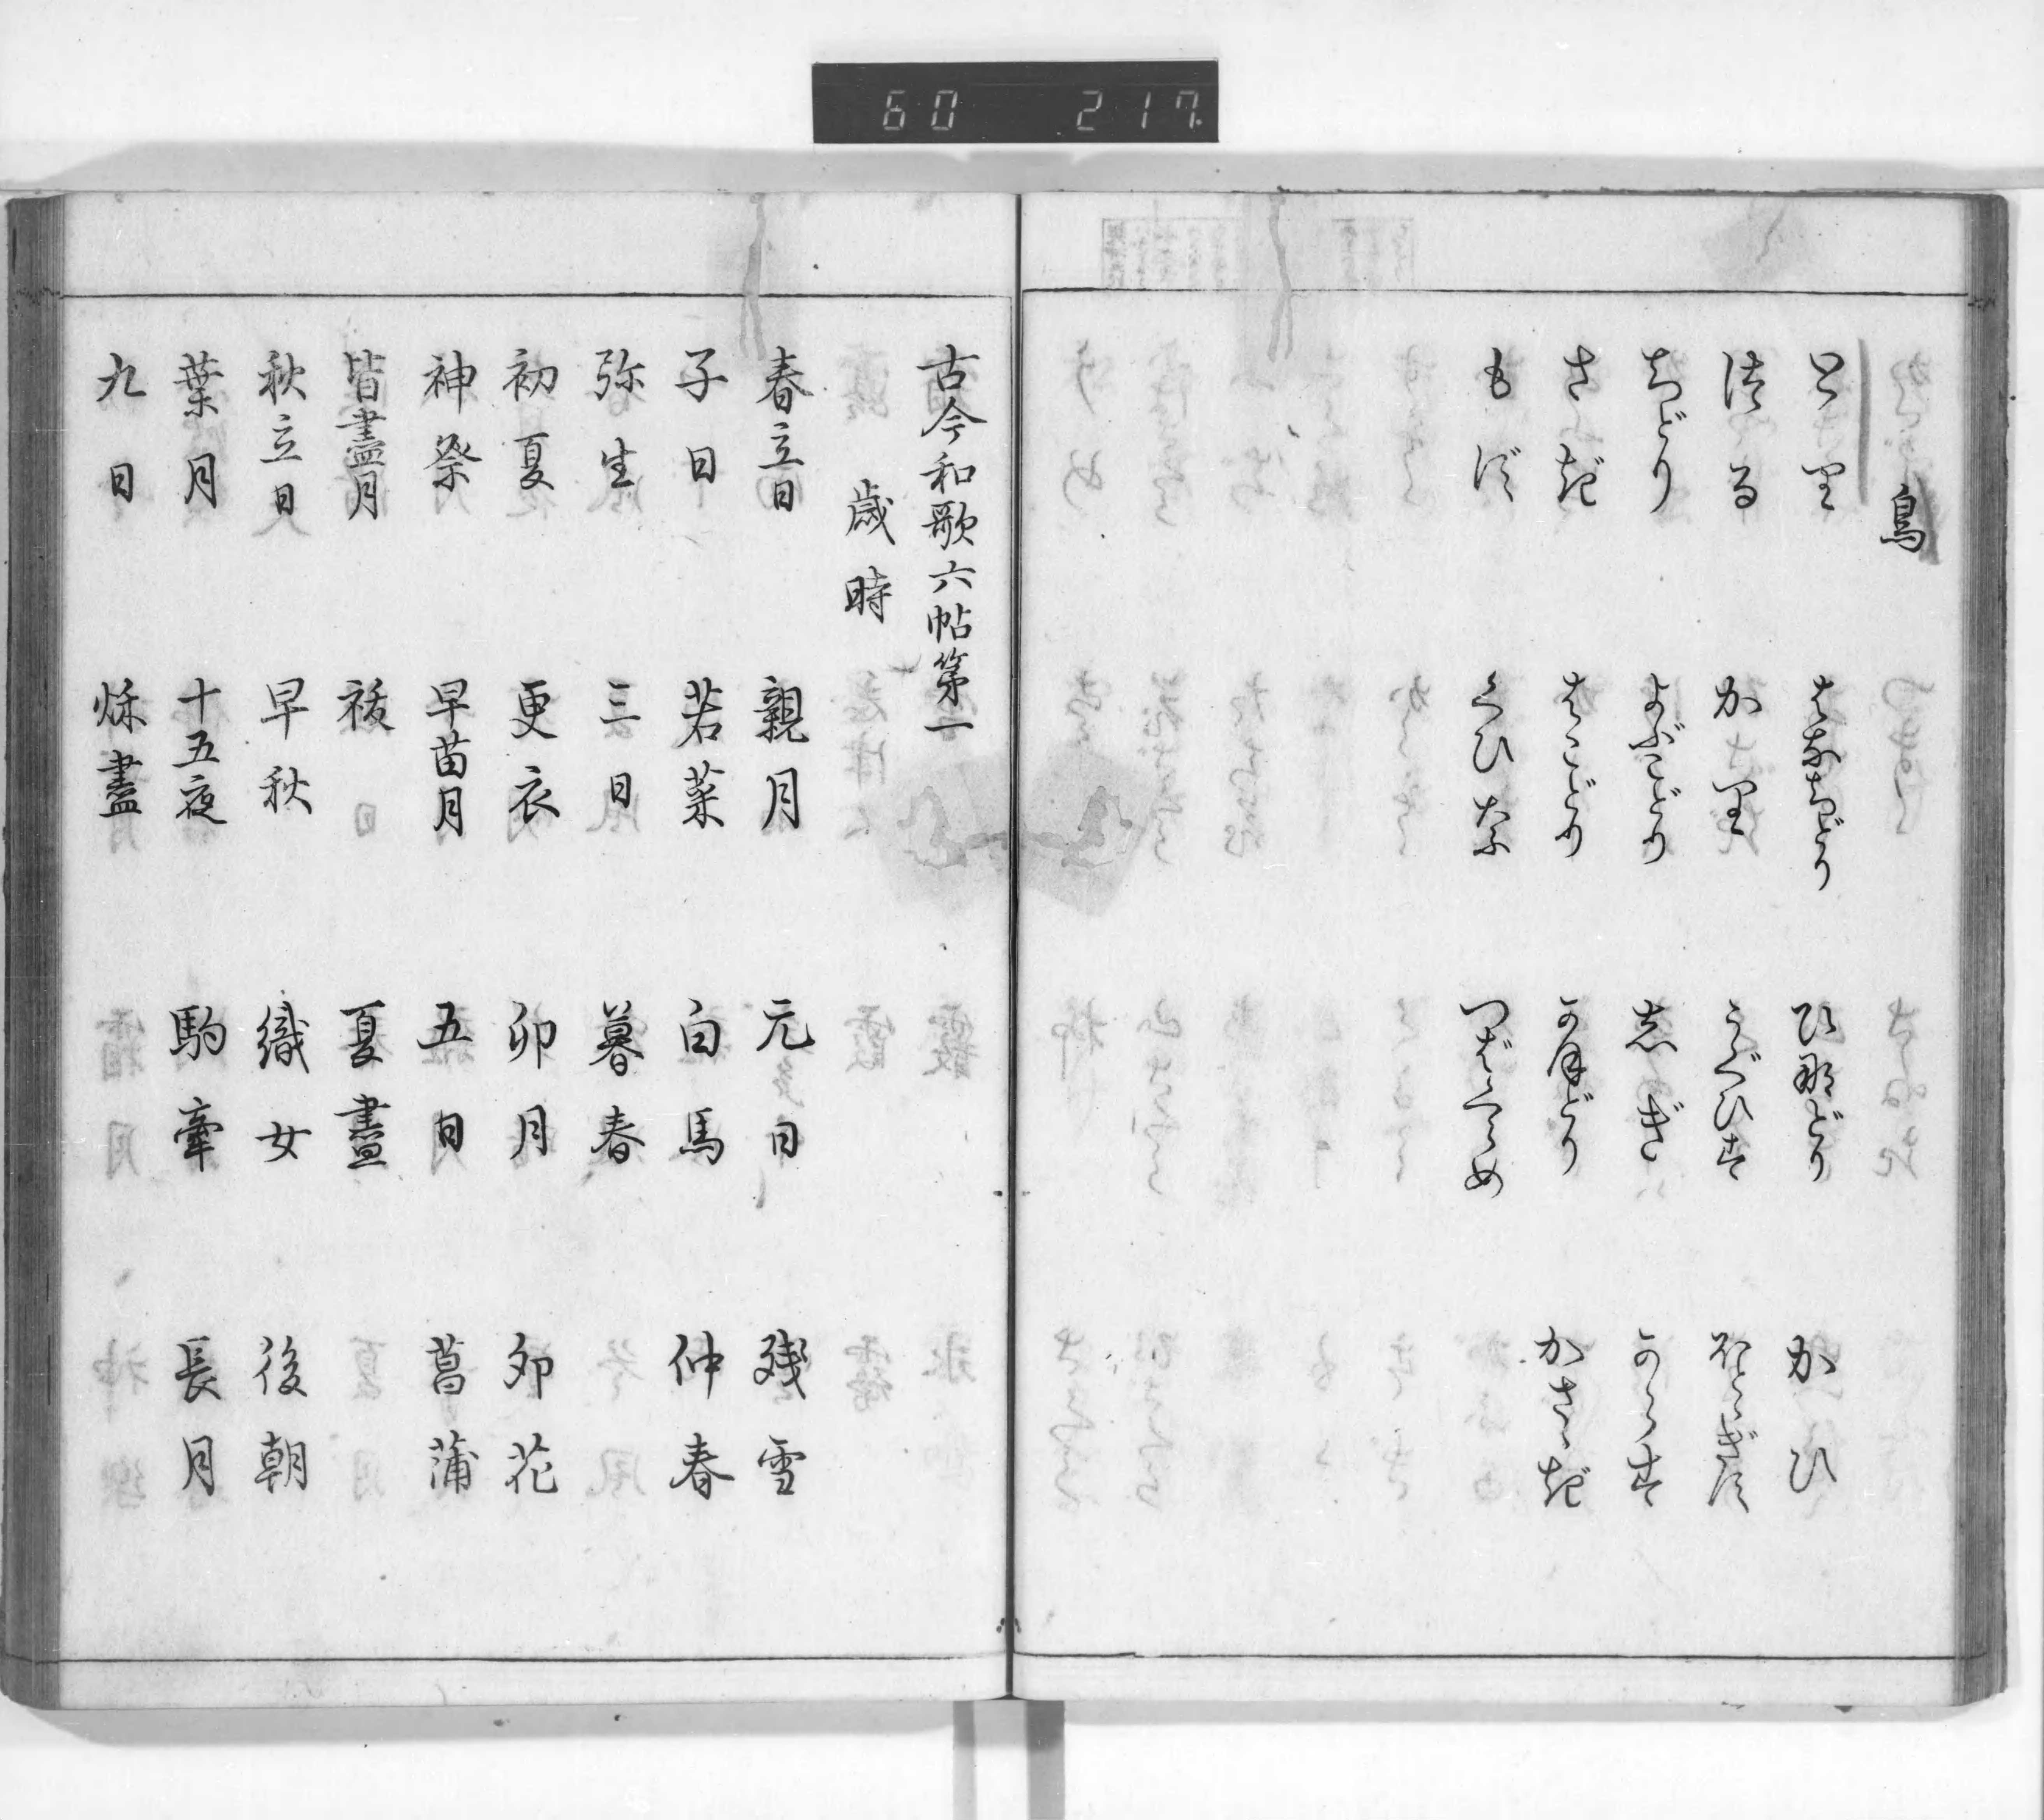 60 217
鳥
とり はなちどり ひなどり かひ
つる かり うぐひす ほとゝぎす
ちどり よぶこどり しぎ からす
さぎ はこどり かほどり かさゝぎ
もず くひな つばくらめ
古今和歌六帖第一
歳時
春立日 親月 元日 残雪
子日 若菜 白馬 仲春
弥生 三日 暮春
初夏 更衣 卯月 卯花
神祭 早苗月 五日 菖蒲
皆盡月 祓 夏盡
秋立日 早秋 織女 後朝
葉月 十五夜 駒牽 長月
九日 秌盡